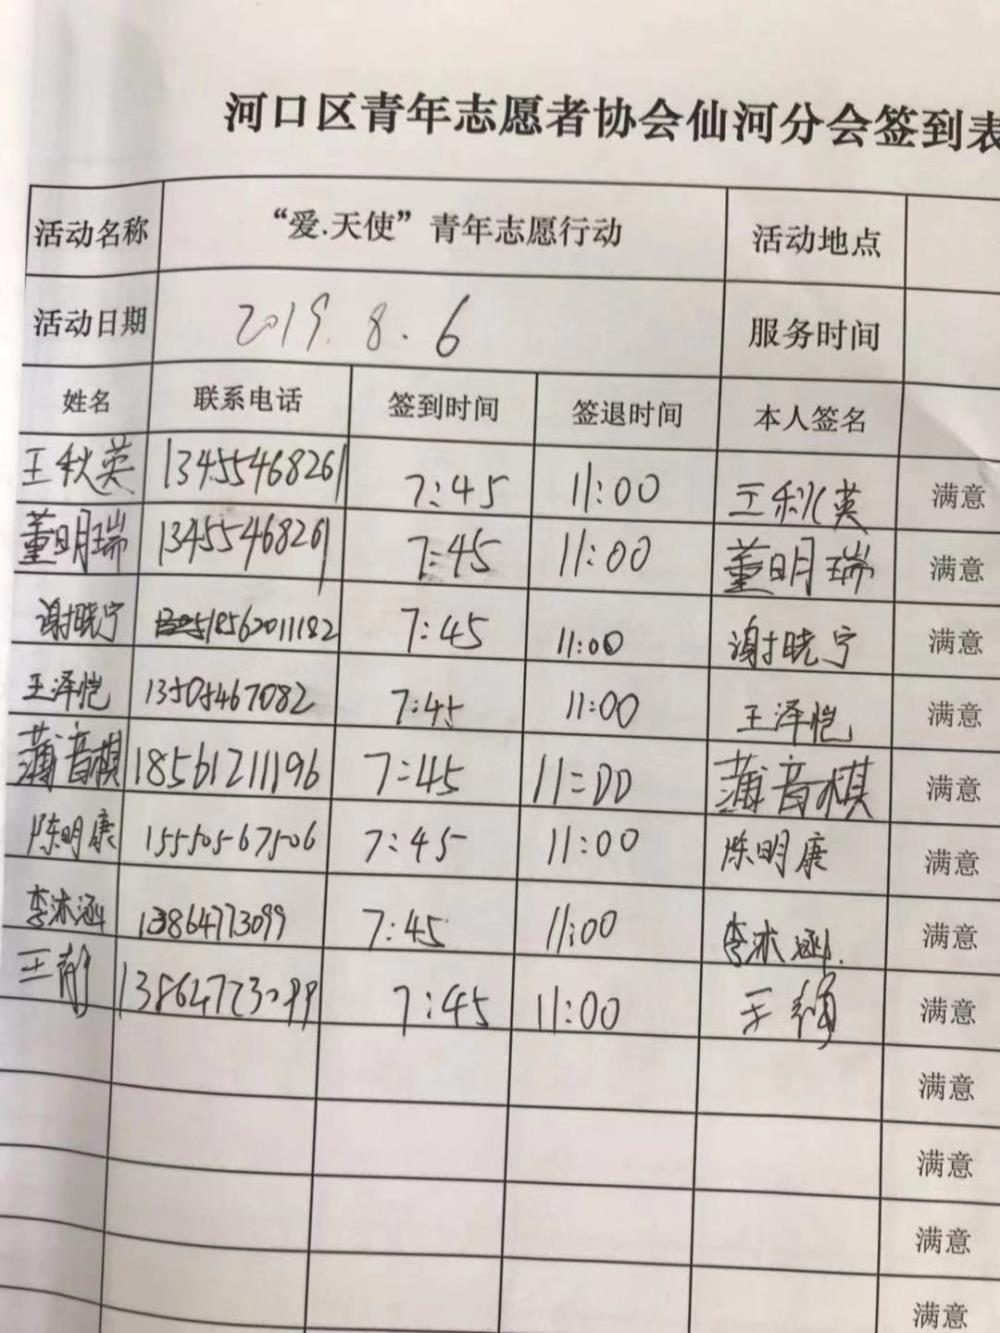 河口区青年志愿者协会仙河分会签到表
活动名称 “爱.天使”青年志愿行动 活动地点
活动日期 2019.8.6 服务时间
姓名 联系电话 签到时间 签退时间 本人签名
王秋英 13455468261 7:45 11:00 王秋英 满意
董明瑞 13455468261 7:45 11:00 董明瑞 满意
谢晓宁 18562011182 7:45 11:00 谢晓宁 满意
王泽恺 13505467082 7:45 11:00 王泽恺 满意
蒲音棋 18561211196 7:45 11:00 蒲音棋 满意
陈明康 15550567506 7:45 11:00 陈明康 满意
李沐涵 13864773099 7:45 11:00 李沐涵. 满意
王 13864773099 7:45 11:00 王 满意
满意
满意
满意
满意